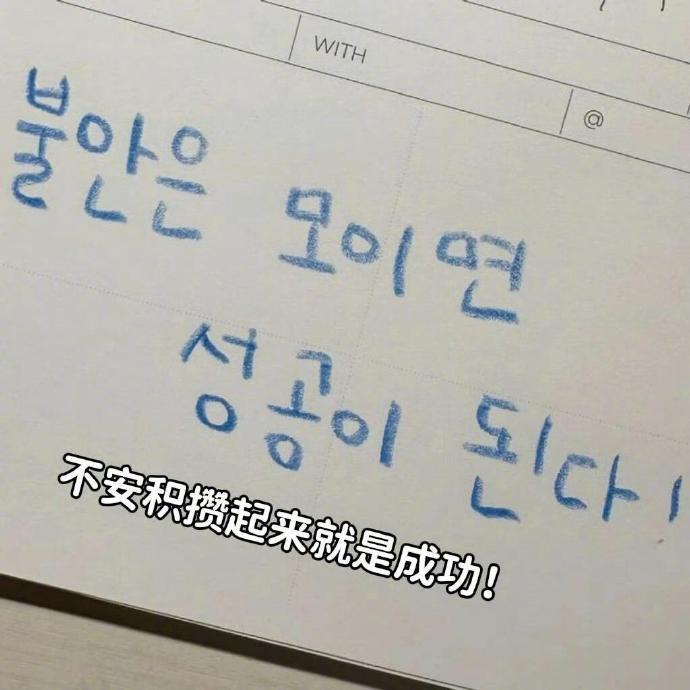 WITH
@
불안은 모이면
성공이 된다!
不安积攒起来就是成功!